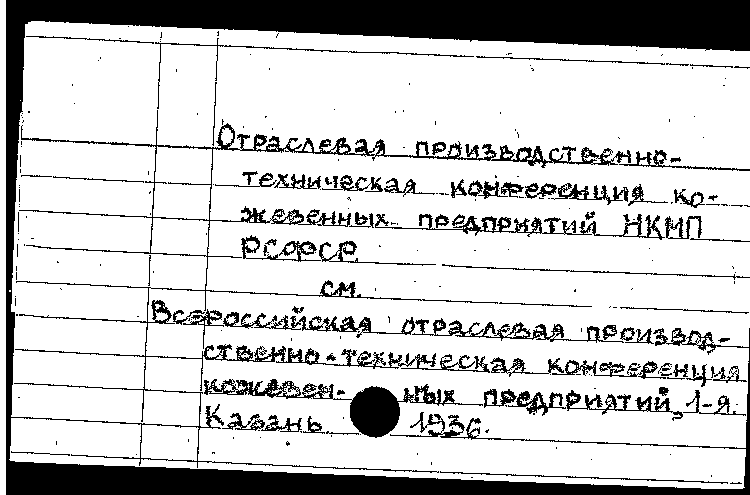 Отраслевая производственно-
техническая конференция ко-
жевенных предприятий НКМП
РСФСР
см.
Всероссийская отраслевая производ-
ственно-техническая конференция
кожевен- ных предприятий, 1-я.
Казань. 1936.